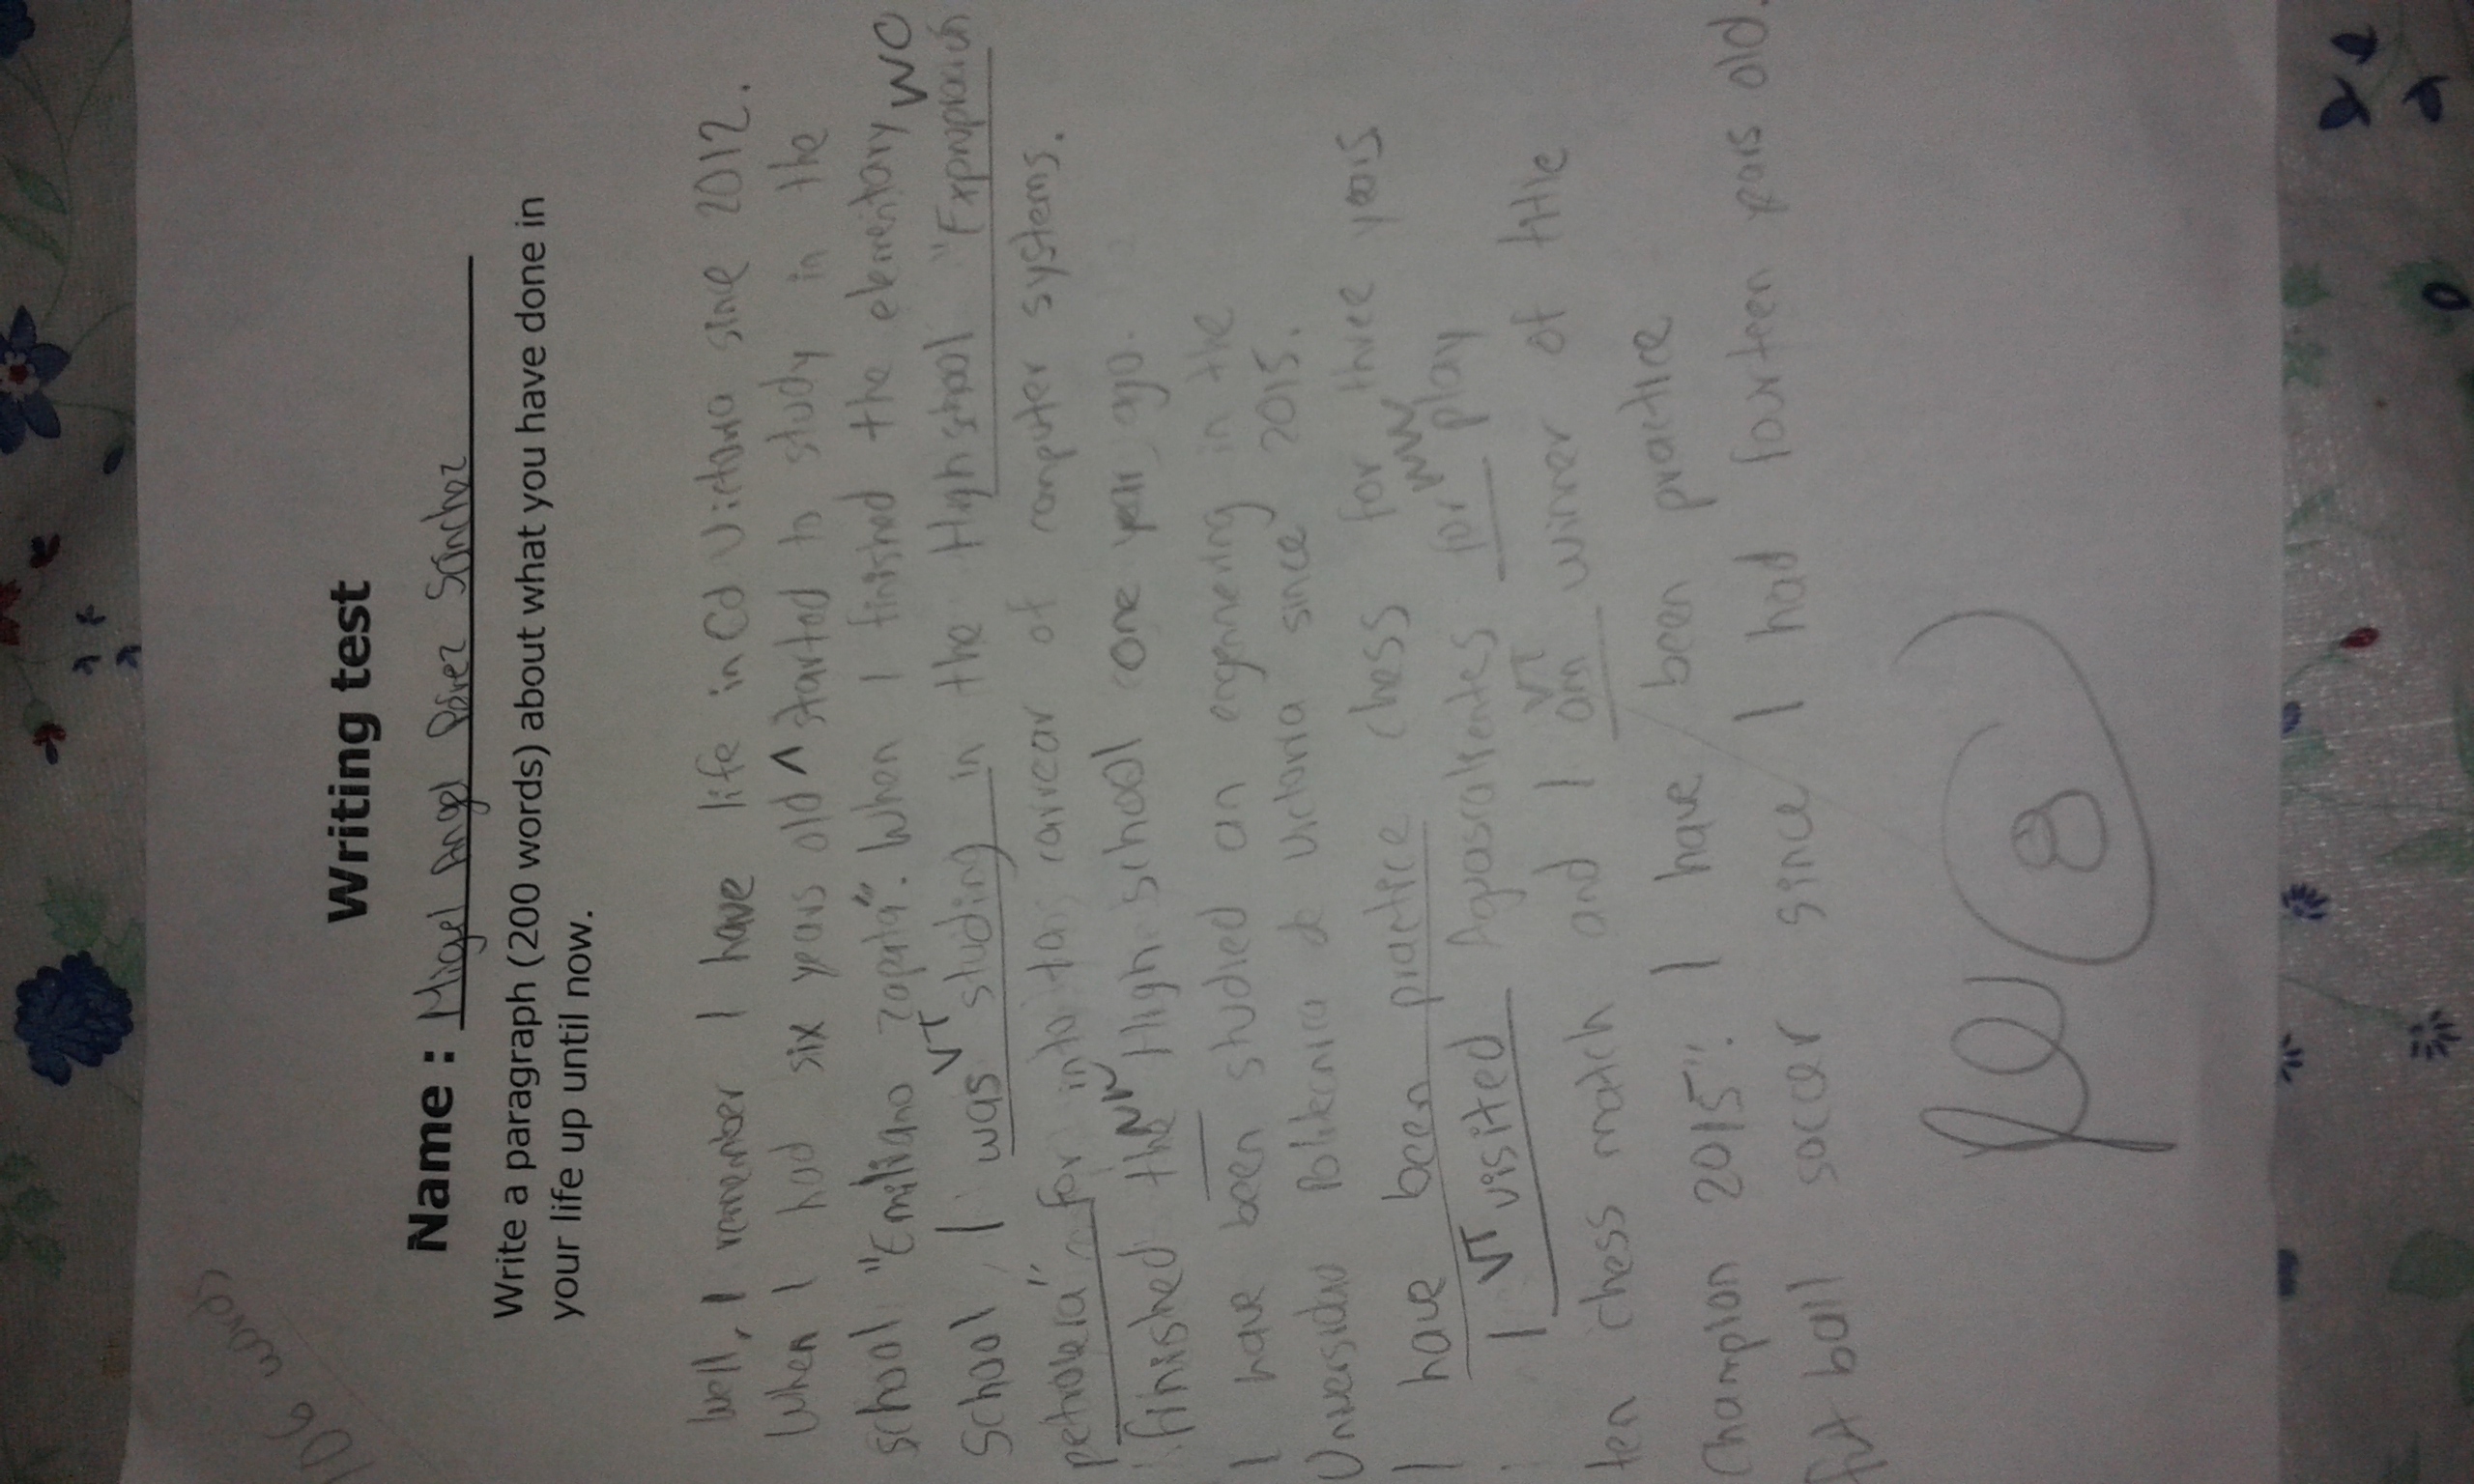 106 words
Writing test
Name : Miguel Angel Pérez Sánchez
Write a paragraph (200 words) about what you have done in
your life up until now.
Well, I remember I have life in Cd Victoria since 2012.
When I had six years old ^ started to study in the
school "Emiliano Zapata". When I finished the elementary WO
School, I was VT studing in the High school "Expropiación
petrolera" for in tais carrear of computer systems.
I finished the NW High school one year ago.
I have been studied an engennering in the
Universidad Politecnica de Victoria since 2015.
I have been practice chess for three years
I VT visited Aguascalientes for WW play
ten chess match and I am VT winner of title
Champion 2015". I have been practice
fut ball soccer since I had fourteen years old.
8